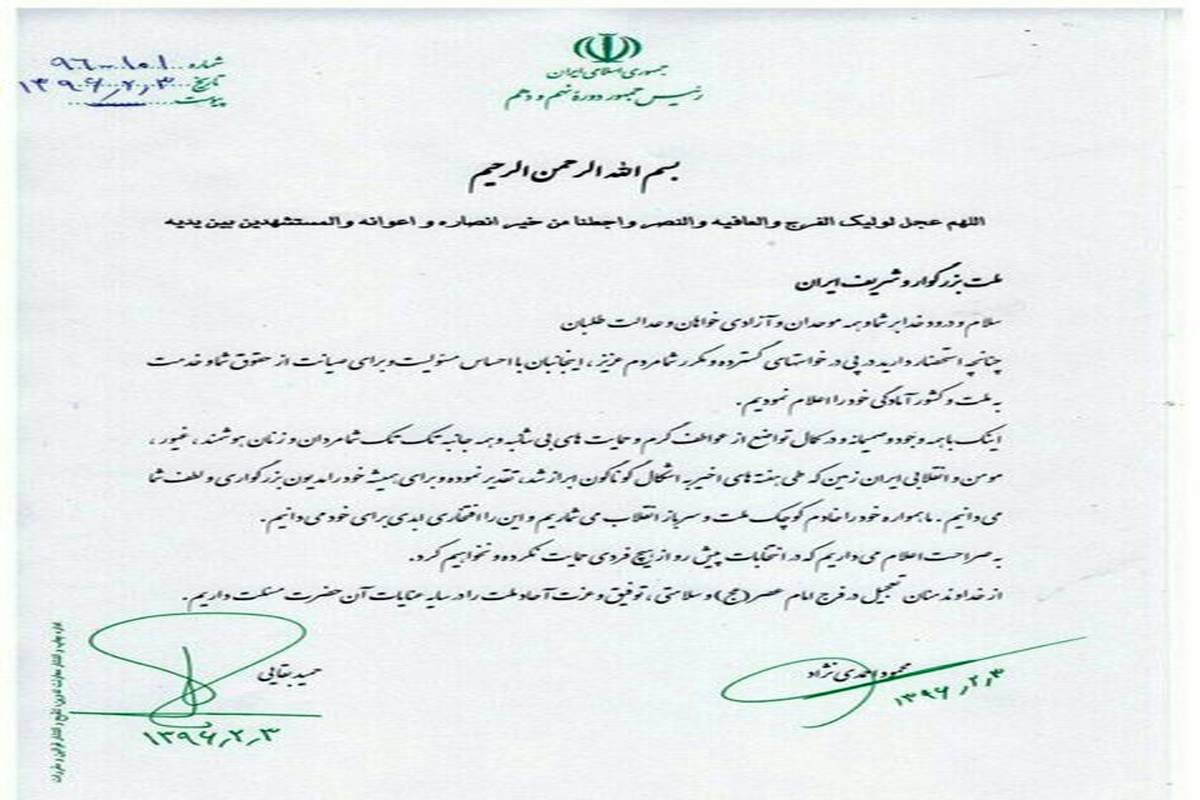 جمهوری اسلامی ایران
رئیس جمهور دوره نهم و دهم
شماره ۹۶۰۰۱۵۱
تاریخ ۱۳۹۶,۲,۳
پیوست
بسم الله الرحمن الرحیم
اللهم عجل لولیک الفرج والعافیه والنصر واجعلنا من خیر انصاره و اعوانه والمستشهدین بین یدیه
ملت بزرگوار و شریف ایران
سلام و درود خدا بر شما و همه موحدان و آزادی خواهان و عدالت طلبان
چنانچه استحضار دارید در پی درخواستهای گسترده و مکرر شما مردم عزیز ، اینجانبان با احساس مسئولیت و برای صیانت از حقوق شما و خدمت
به ملت و کشور آمادگی خود را اعلام نمودیم.
اینک با همه وجود و صمیمانه و در کمال تواضع از عواطف گرم و حمایت های بی شائبه و همه جانبه تک تک شما مردان و زنان هوشمند ، غیور ،
مومن و انقلابی ایران زمین که طی هفته های اخیر به اشکال گوناگون ابراز شد، تقدیر نموده و برای همیشه خود را مدیون بزرگواری و لطف شما
می دانیم . ما همواره خود را خادم کوچک ملت و سرباز انقلاب می شماریم و این را افتخاری ابدی برای خود می دانیم.
به صراحت اعلام می داریم که در انتخابات پیش رو از هیچ فردی حمایت نکرده و نخواهیم کرد.
از خداوند منان تعجیل در فرج امام عصر (عج) و سلامتی ، توفیق و عزت آحاد ملت را در سایه عنایات آن حضرت مسئلت داریم.
محمود احمدی نژاد
۱۳۹۶,۲,۳
حمید بقایی
۱۳۹۶,۲,۳